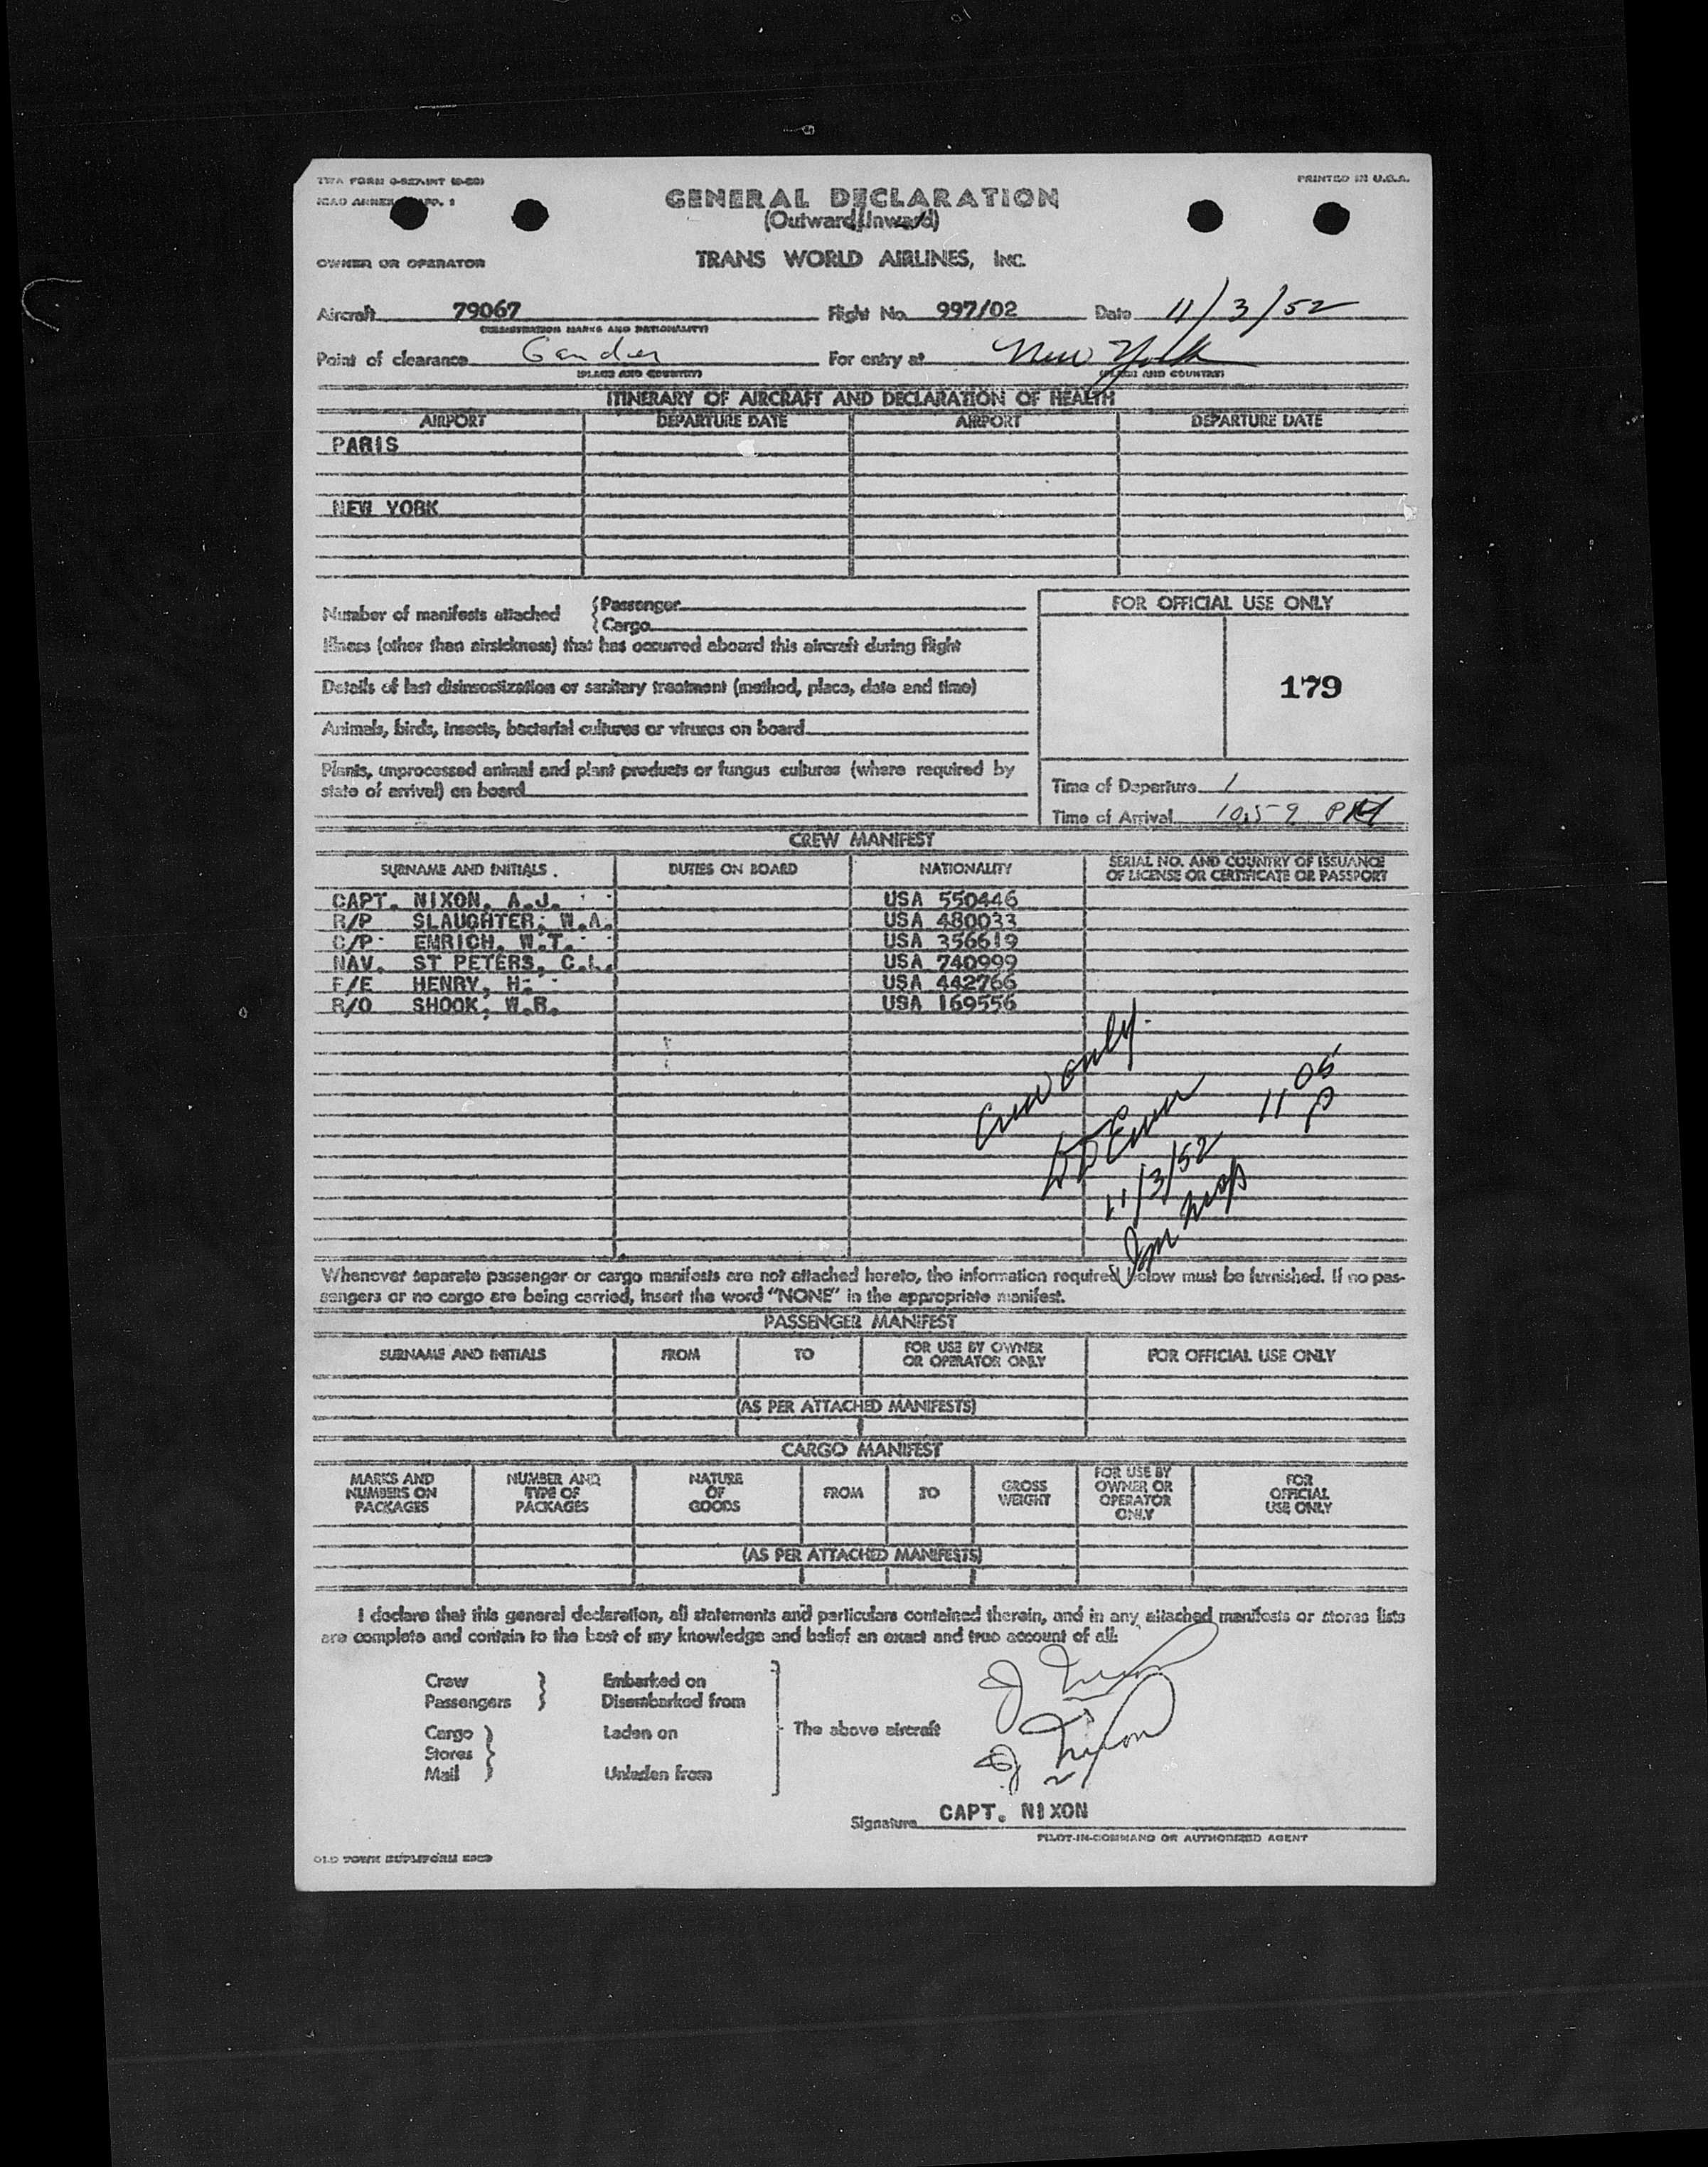 TWA FORM
PRINTED IN U.S.A.
ICAO ANNEX APP. 1
GENERAL DECLARATION
(Outward/Inward)
OWNER OR OPERATOR
TRANS WORLD AIRLINES, INC.
Aircraft 79067 Flight No. 997/02 Date 11/3/52
(REGISTRATION MARKS AND NATIONALITY)
Point of clearance Gander For entry at New York
(PLACE AND COUNTRY) (PLACE AND COUNTRY)
ITINERARY OF AIRCRAFT AND DECLARATION OF HEALTH
AIRPORT DEPARTURE DATE AIRPORT DEPARTURE DATE
PARIS
NEW YORK
Number of manifests attached { Passenger
{ Cargo
FOR OFFICIAL USE ONLY
Illness (other than airsickness) that has occurred aboard this aircraft during flight
Details of last disinsectization or sanitary treatment (method, place, date and time)
179
Animals, birds, insects, bacterial cultures or viruses on board
Plants, unprocessed animal and plant products or fungus cultures (where required by
state of arrival) on board
Time of Departure
Time of Arrival 10:59 PM
CREW MANIFEST
SURNAME AND INITIALS DUTIES ON BOARD NATIONALITY SERIAL NO. AND COUNTRY OF ISSUANCE OF LICENSE OR CERTIFICATE OR PASSPORT
CAPT. NIXON, A.J. USA 550446
R/P SLAUGHTER, W.A. USA 480033
C/P EMRICH, W.T. USA 356619
NAV. ST PETERS, C.L. USA 740999
F/E HENRY, H. USA 442766
R/O SHOOK, W.R. USA 169556
Crew only.
11 05 P
11/3/52
Whenever separate passenger or cargo manifests are not attached hereto, the information required below must be furnished. If no pas-
sengers or no cargo are being carried, insert the word "NONE" in the appropriate manifest.
PASSENGER MANIFEST
SURNAME AND INITIALS FROM TO FOR USE BY OWNER OR OPERATOR ONLY FOR OFFICIAL USE ONLY
(AS PER ATTACHED MANIFESTS)
CARGO MANIFEST
MARKS AND NUMBERS ON PACKAGES NUMBER AND TYPE OF PACKAGES NATURE OF GOODS FROM TO GROSS WEIGHT FOR USE BY OWNER OR OPERATOR ONLY FOR OFFICIAL USE ONLY
(AS PER ATTACHED MANIFESTS)
I declare that this general declaration, all statements and particulars contained therein, and in any attached manifests or stores lists
are complete and contain to the best of my knowledge and belief an exact and true account of all:
Crew } Embarked on
Passengers } Disembarked from
Cargo } Laden on The above aircraft
Stores }
Mail } Unladen from
Nixon
Signature CAPT. NIXON
PILOT-IN-COMMAND OR AUTHORIZED AGENT
OLD TOWN